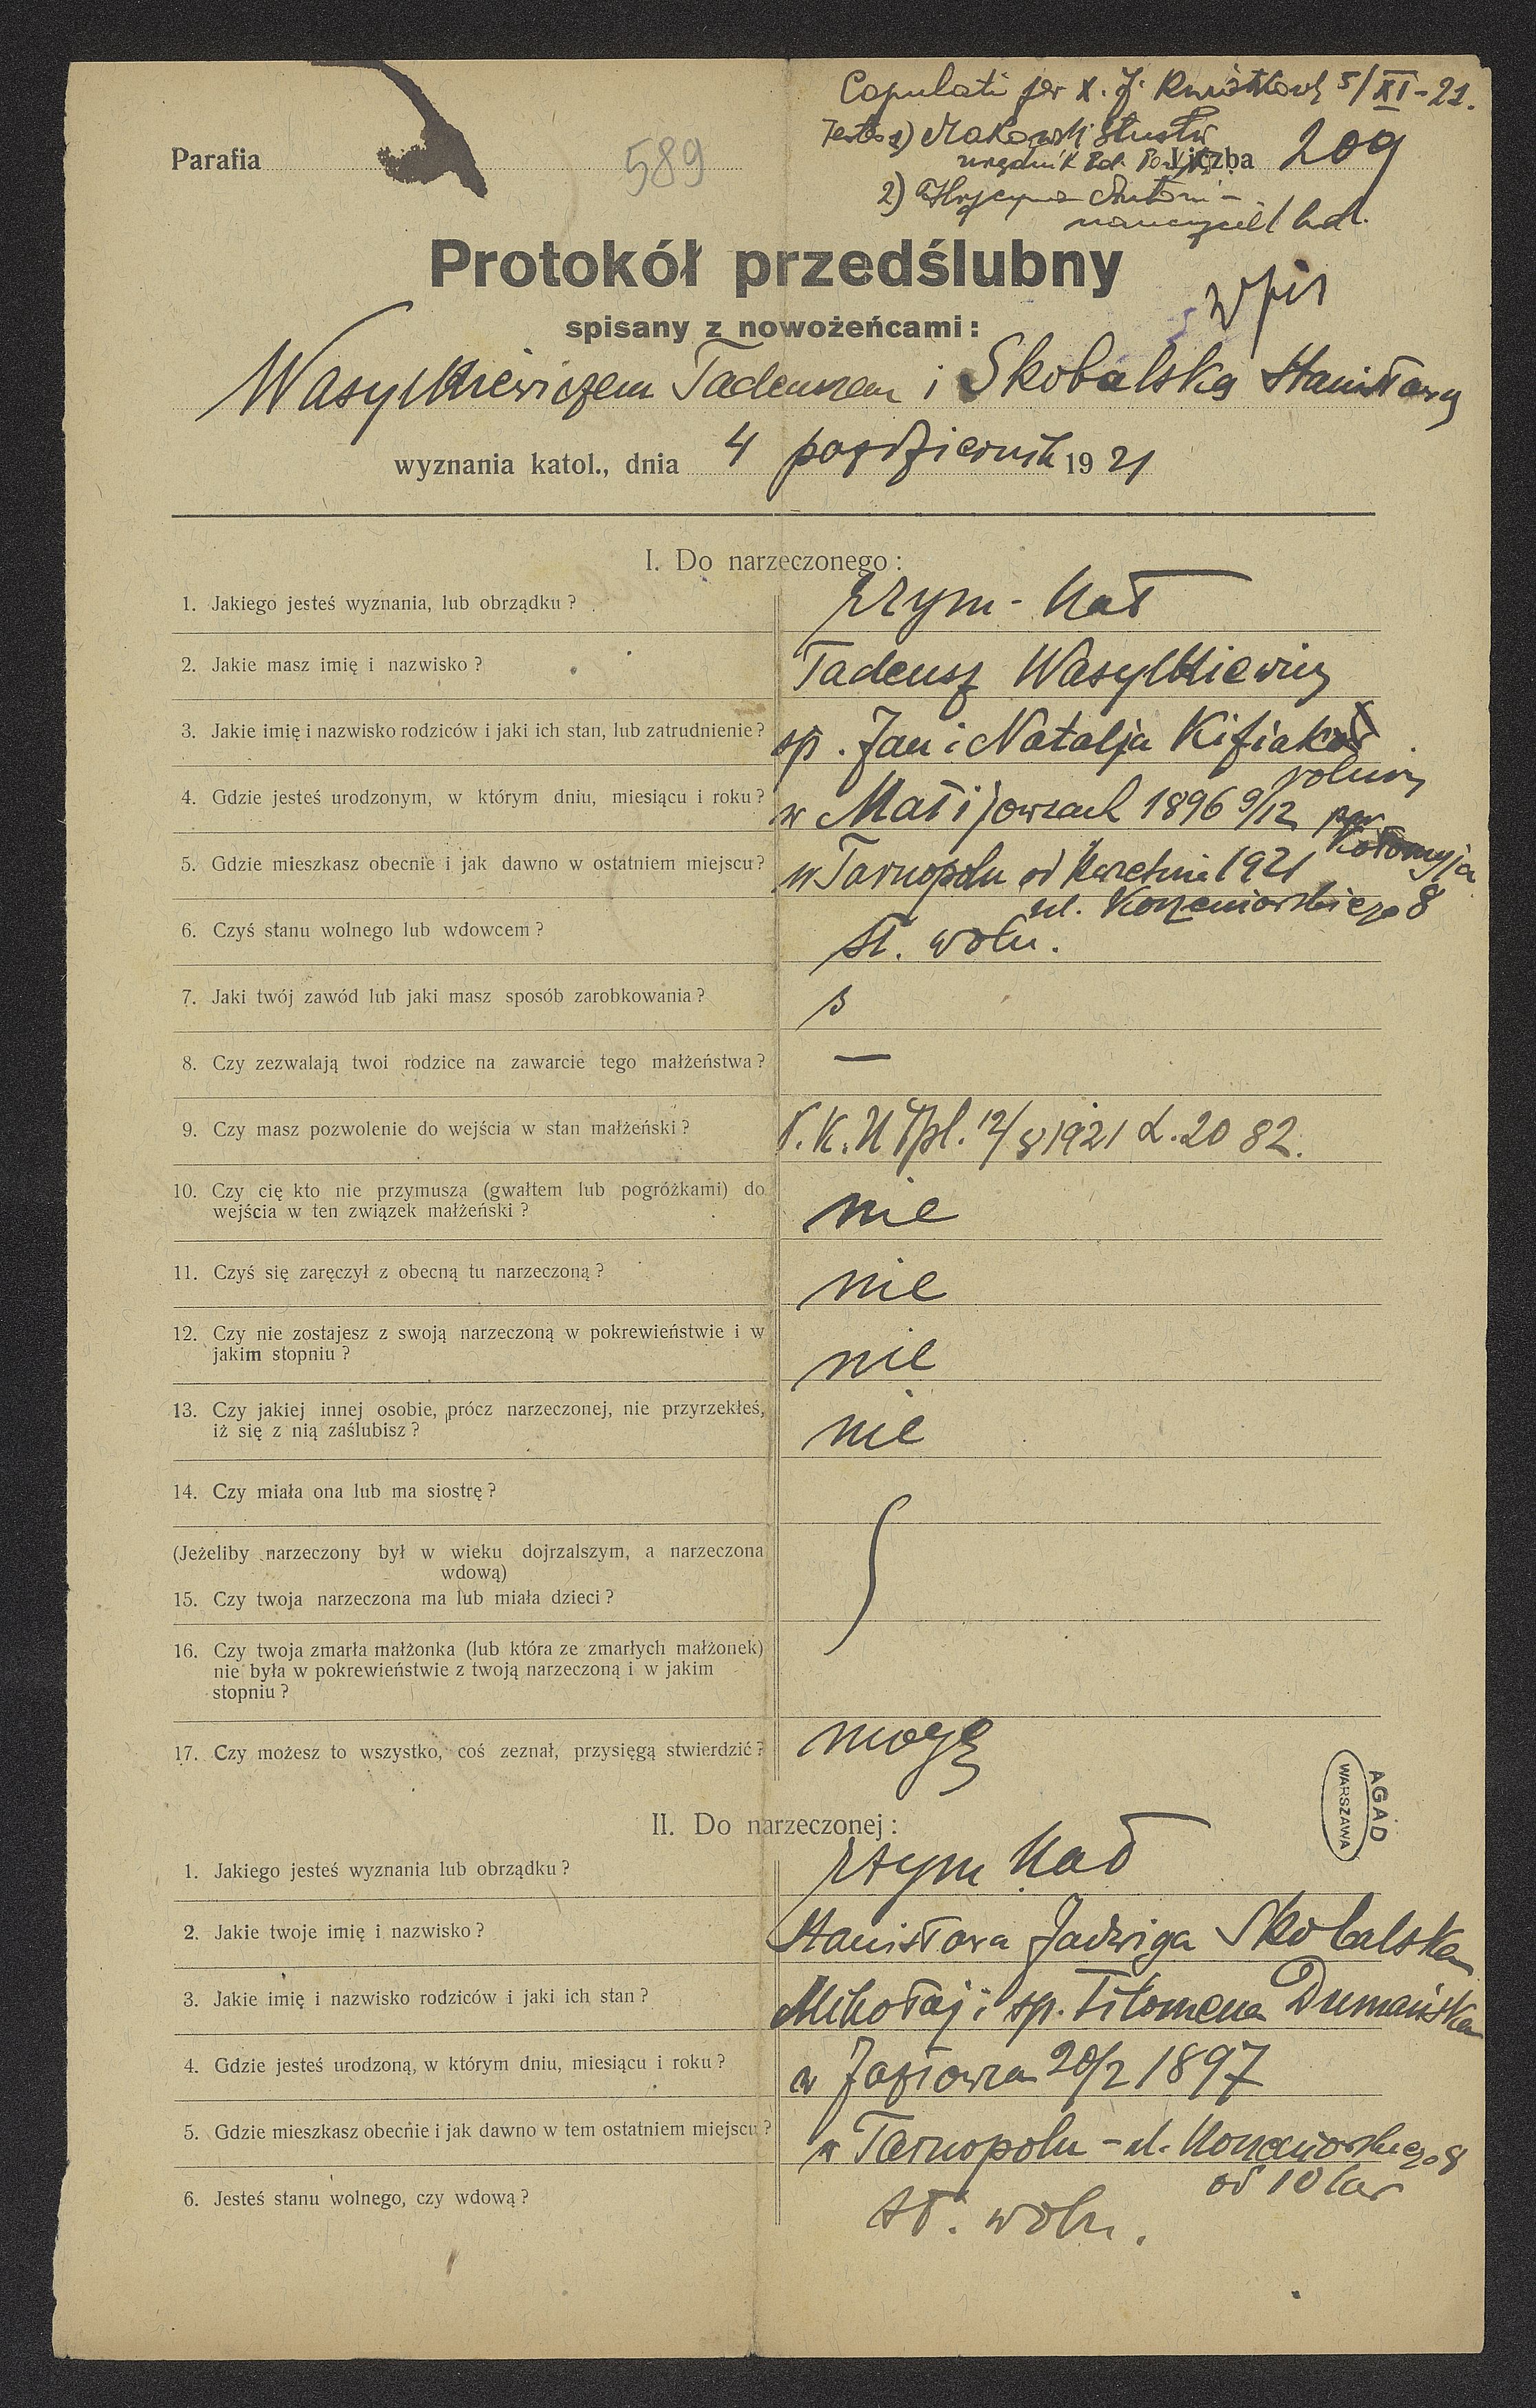 Copulati per X. J. 5/XI-21.
Testes 1) Makowski
urzędnik
Parafia 589 Liczba 209
2) Hrycyna Antoni -
nauczyciel lud.
Protokół przedślubny
wpis
spisany z nowożeńcami:
Wasylkiewiczem Tadeuszem i Skobalską Stanisławą
wyznania katol., dnia 4 październik 1921
I. Do narzeczonego:
1. Jakiego jesteś wyznania, lub obrządku? rzym-kat
2. Jakie masz imię i nazwisko? Tadeusz Wasylkiewicz
3. Jakie imię i nazwisko rodziców i jaki ich stan, lub zatrudnienie? sp. Jan i Natalja Kifiak
rolnicy
4. Gdzie jesteś urodzonym, w którym dniu, miesiącu i roku? w Matijowcach 1896 9/12 pow
Kołomyja
5. Gdzie mieszkasz obecnie i jak dawno w ostatniem miejscu? w Tarnopolu od kwietnia 1921
ul. Korzeniowskiego 8
6. Czyś stanu wolnego lub wdowcem? st. woln.
7. Jaki twój zawód lub jaki masz sposób zarobkowania?
8. Czy zezwalają twoi rodzice na zawarcie tego małżeństwa? —
9. Czy masz pozwolenie do wejścia w stan małżeński? P.K.U Tpl. 12/8 1921 L. 2082.
10. Czy cię kto nie przymusza (gwałtem lub pogróżkami) do
wejścia w ten związek małżeński? nie
11. Czyś się zaręczył z obecną tu narzeczoną? nie
12. Czy nie zostajesz z swoją narzeczoną w pokrewieństwie i w
jakim stopniu? nie
13. Czy jakiej innej osobie, prócz narzeczonej, nie przyrzekłeś,
iż się z nią zaślubisz? nie
14. Czy miała ona lub ma siostrę?
(Jeżeliby narzeczony był w wieku dojrzalszym, a narzeczona
wdową)
15. Czy twoja narzeczona ma lub miała dzieci?
16. Czy twoja zmarła małżonka (lub która ze zmarłych małżonek)
nie była w pokrewieństwie z twoją narzeczoną i w jakim
stopniu?
17. Czy możesz to wszystko, coś zeznał, przysięgą stwierdzić? mogę
AGAD
WARSZAWA
II. Do narzeczonej:
1. Jakiego jesteś wyznania lub obrządku? rzym kat
2. Jakie twoje imię i nazwisko? Stanisława Jadwiga Skobalska
3. Jakie imię i nazwisko rodziców i jaki ich stan? Mikołaj i sp. Filomena Dumańska
4. Gdzie jesteś urodzoną, w którym dniu, miesiącu i roku? w 20/2 1897
5. Gdzie mieszkasz obecnie i jak dawno w tem ostatniem miejscu? w Tarnopolu - ul. Korzeniowskiego 8
od 10 lat
6. Jesteś stanu wolnego, czy wdową? st. woln.